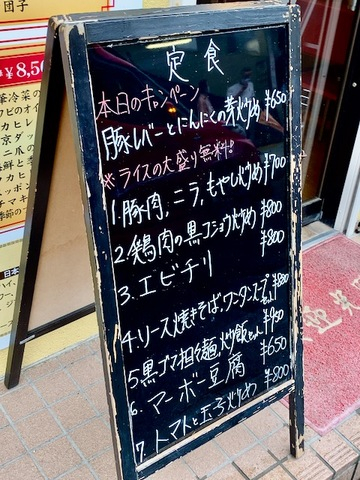 団子
¥8,50
定食
本日のキャンペーン
豚レバーとにんにくの芽炒め ¥650
※ライスの大盛り無料!
1. 豚肉、ニラ、もやし炒め ¥700
2. 鶏肉の黒コショウ炒め ¥800
3. エビチリ ¥800
4. ソース焼きそば、ワンタンスープセット ¥880
5. 黒ゴマ担々麺、炒飯セット ¥950
6. マーボー豆腐 ¥650
7. トマトと玉子炒め ¥800